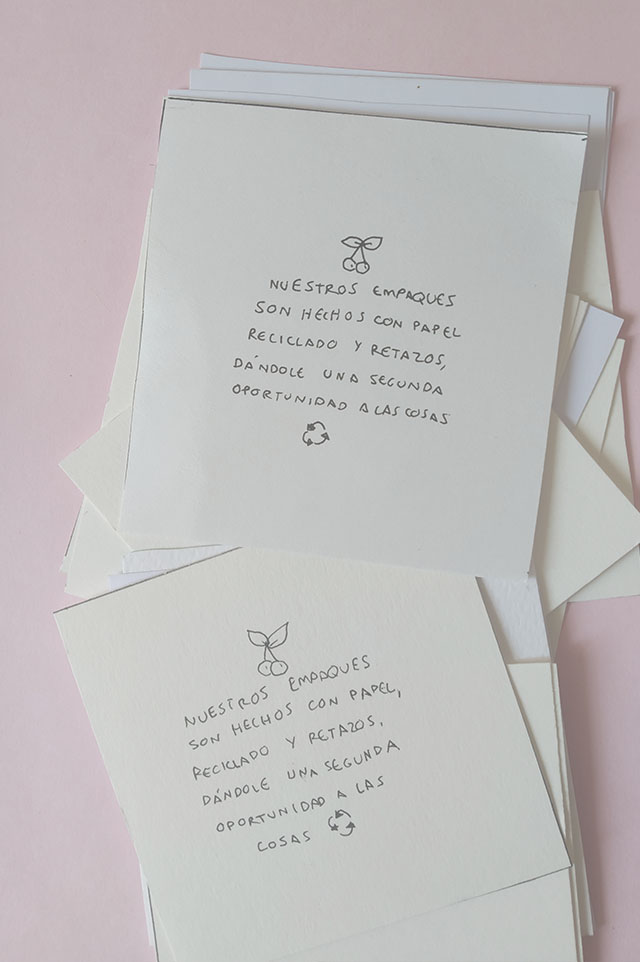 NUESTROS EMPAQUES
SON HECHOS CON PAPEL
RECICLADO Y RETAZOS,
DÁNDOLE UNA SEGUNDA
OPORTUNIDAD A LAS COSAS
NUESTROS EMPAQUES
SON HECHOS CON PAPEL,
RECICLADO Y RETAZOS,
DÁNDOLE UNA SEGUNDA
OPORTUNIDAD A LAS
COSAS